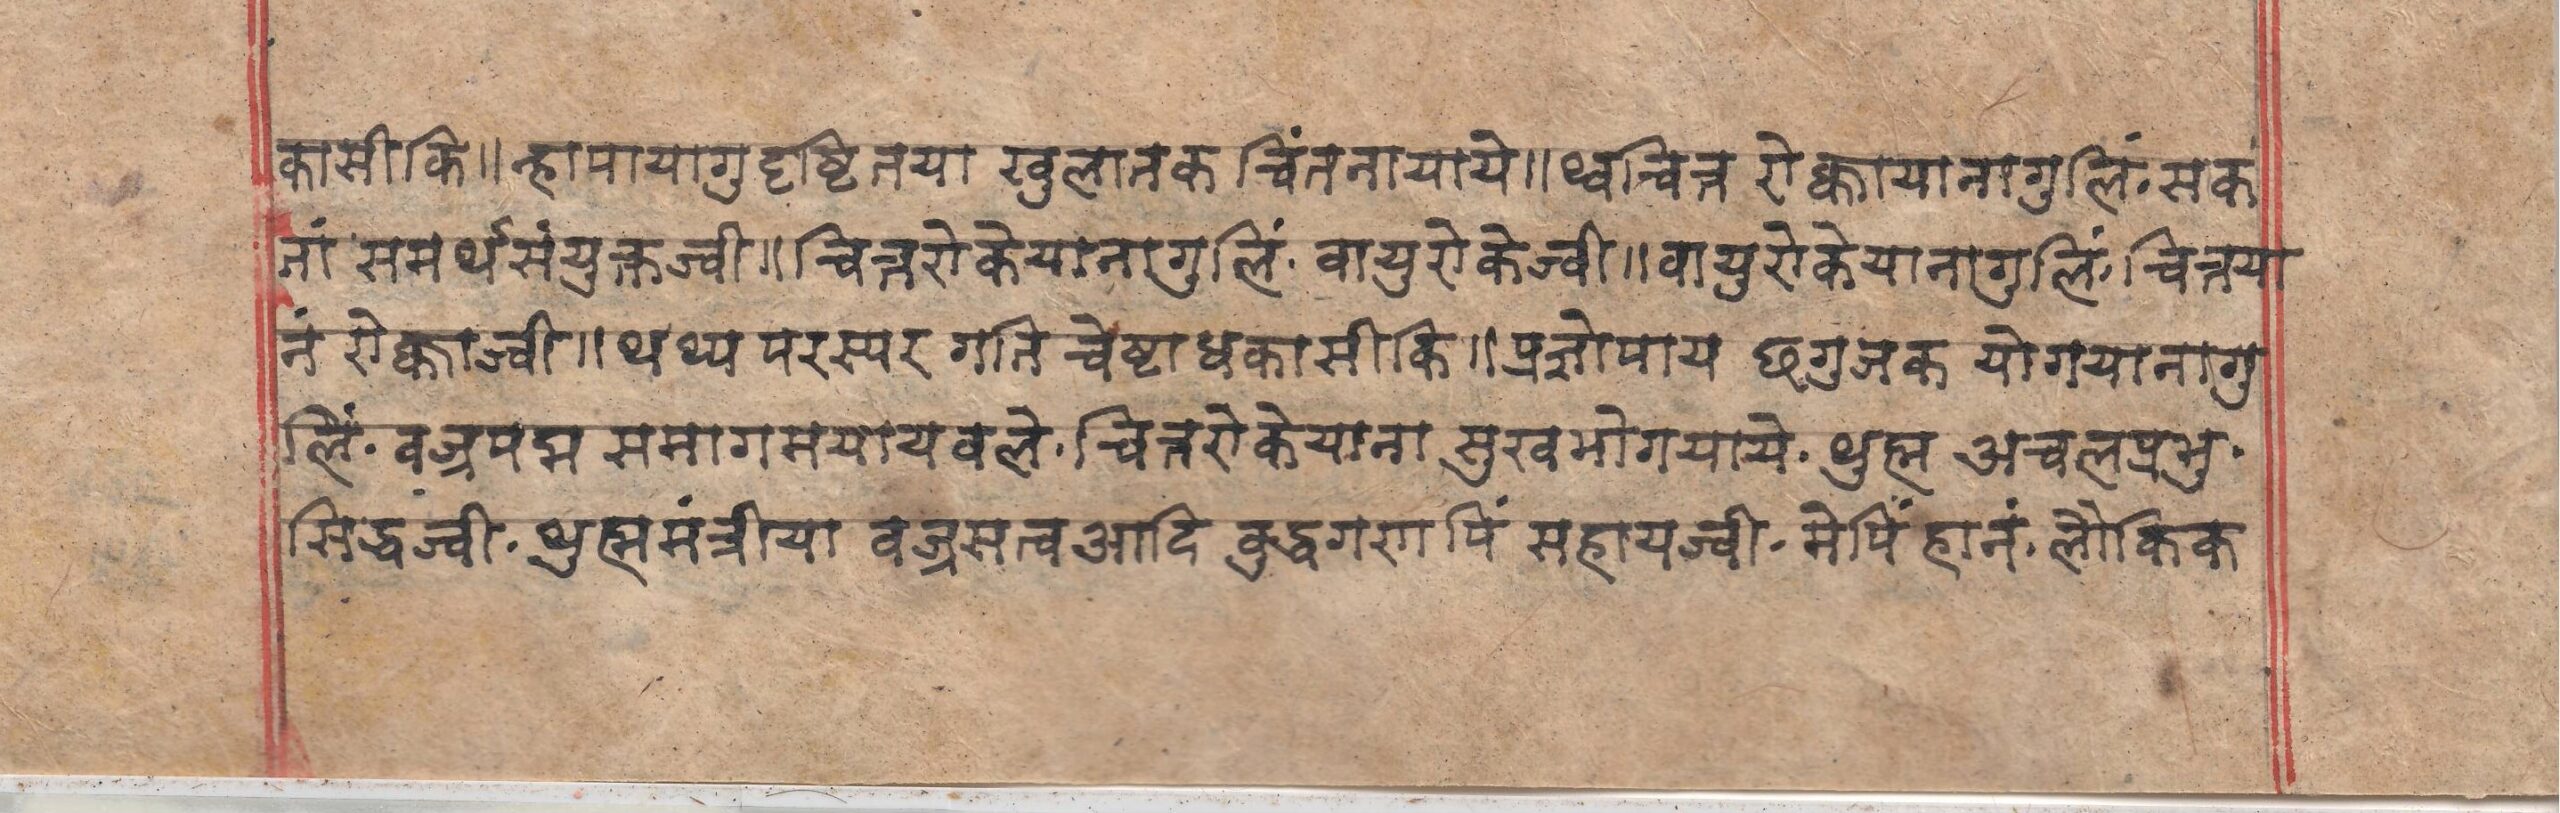 कासीकि॥ न्हापायागु दृष्टितया खुलातक चिंतनायाये॥ थ्वचित्त रोक्कायानागुलिं॰ सक
तां समर्थसंयुक्तज्वी॥ चित्तरोकेयानागुलिं॰ वायुरोकेज्वी॥ वायुरोकेयानागुलिं॰ चित्तया
नं रोक्काज्वी॥ थथ्य परस्पर गति चेष्टा धकासीकि॥ प्रज्ञोपाय छगुजक योगयानागु
लिं॰ वज्रपद्म समागमयायवले॰ चित्तरोकेयाना सुखभोगयाये॰ थुह्म अचलप्रभु॰
सिद्धज्वी॰ थुह्ममंत्रीया वज्रसत्व आदि बुद्धगणपिं सहायज्वी॰ मेपिं हानं॰ लौकिक